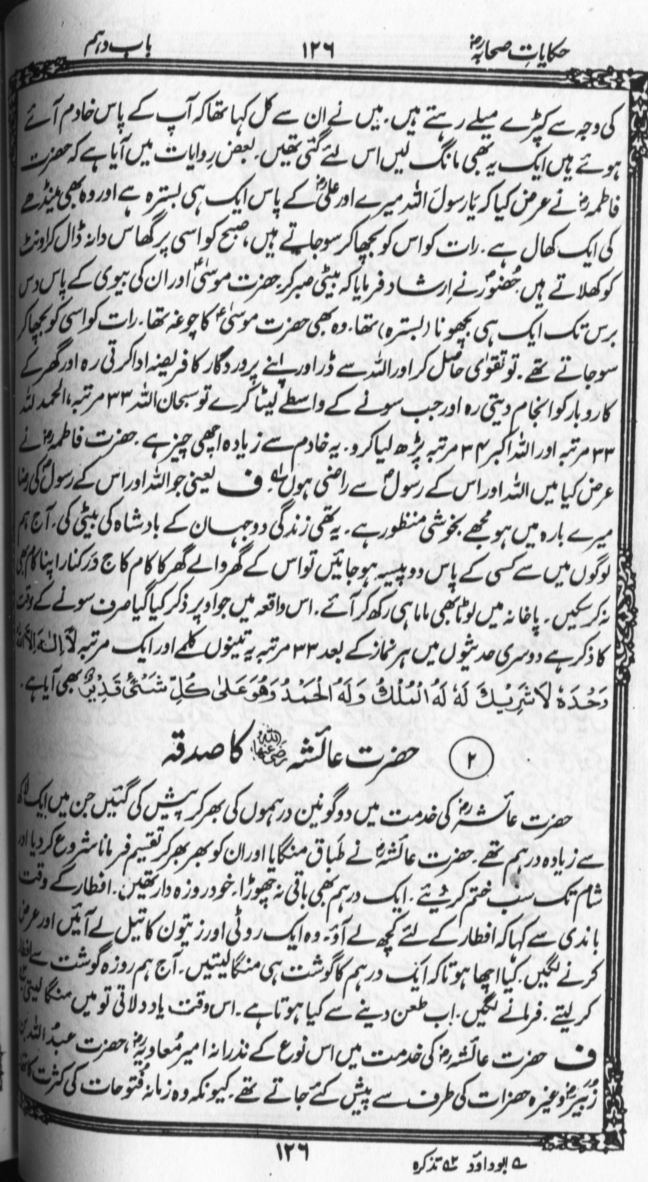 حکایاتِ صحابہؓ ۱۲۶ باب دہم
کی وجہ سے کپڑے میلے رہتے ہیں۔ میں نے ان سے کل کہا تھا کہ آپ کے پاس خادم آئے
ہوئے ہیں ایک یہ بھی مانگ لیں اس لئے گئی تھیں۔ بعض روایات میں آیا ہے کہ حضرت
فاطمہؓ نے عرض کیا کہ یا رسول اللہ میرے اور علیؓ کے پاس ایک ہی بسترہ ہے اور وہ بھی مینڈھے
کی ایک کھال ہے۔ رات کو اس کو بچھا کر سو جاتے ہیں، صبح کو اسی پر گھاس دانہ ڈال کر اونٹ
کو کھلاتے ہیں۔ حضورؐ نے ارشاد فرمایا کہ بیٹی صبر کر۔ حضرت موسیٰؑ اور ان کی بیوی کے پاس دس
برس تک ایک ہی بچھونا (بسترہ) تھا۔ وہ بھی حضرت موسیٰؑ کا چوغہ تھا۔ رات کو اسی کو بچھا کر
سو جاتے تھے۔ تو تقویٰ حاصل کر اور اللہ سے ڈر اور اپنے پروردگار کا فریضہ ادا کرتی رہ اور گھر کے
کاروبار کو انجام دیتی رہ اور جب سونے کے واسطے لیٹا کرے تو سبحان اللہ ۳۳ مرتبہ، الحمد للہ
۳۳ مرتبہ اور اللہ اکبر ۳۴ مرتبہ پڑھ لیا کرو۔ یہ خادم سے زیادہ اچھی چیز ہے۔ حضرت فاطمہؓ نے
عرض کیا میں اللہ اور اس کے رسولؐ سے راضی ہوں۔ ف یعنی جو اللہ اور اس کے رسولؐ کی رضا
میرے بارہ میں ہو مجھے بخوشی منظور ہے۔ یہ تھی زندگی دو جہان کے بادشاہ کی بیٹی کی۔ آج ہم
لوگوں میں سے کسی کے پاس دو پیسہ ہو جائیں تو اس کے گھر والے گھر کا کام کاج درکنار اپنا کام بھی
نہ کر سکیں۔ پاخانہ میں لوٹا بھی ماما ہی رکھ کر آئے۔ اس واقعہ میں جو اوپر ذکر کیا گیا صرف سونے کے وقت
کا ذکر ہے دوسری حدیثوں میں ہر نماز کے بعد ۳۳ مرتبہ یہ تینوں کلمے اور ایک مرتبہ لَآ اِلٰہَ اِلَّا اللہُ
وَحْدَہٗ لَا شَرِیْکَ لَہٗ لَہُ الْمُلْکُ وَلَہُ الْحَمْدُ وَھُوَ عَلٰی کُلِّ شَیْءٍ قَدِیْرٌ بھی آیا ہے۔
۲ حضرت عائشہ رضی اللہ عنہا کا صدقہ
حضرت عائشہؓ کی خدمت میں دو گونین درہموں کی بھر کر پیش کی گئیں جن میں ایک لاکھ
سے زیادہ درہم تھے۔ حضرت عائشہؓ نے طباق منگایا اور ان کو بھر بھر کر تقسیم فرمانا شروع کر دیا اور
شام تک سب ختم کر دیئے۔ ایک درہم بھی باقی نہ چھوڑا۔ خود روزہ دار تھیں۔ افطار کے وقت
باندی سے کہا کہ افطار کے لئے کچھ لے آؤ۔ وہ ایک روٹی اور زیتون کا تیل لے آئیں اور عرض
کرنے لگیں۔ کیا اچھا ہوتا کہ ایک درہم کا گوشت ہی منگا لیتیں۔ آج ہم روزہ گوشت سے افطار
کر لیتے۔ فرمانے لگیں۔ اب طعن دینے سے کیا ہوتا ہے۔ اس وقت یاد دلاتی تو میں منگا لیتی
ف حضرت عائشہؓ کی خدمت میں اس نوع کے نذرانہ امیر معاویہؓ، حضرت عبداللہ بن
زبیرؓ وغیرہ حضرات کی طرف سے پیش کئے جاتے تھے۔ کیونکہ وہ زمانہ فتوحات کی کثرت کا تھا
؂۱ ابوداؤد ؂۲ تذکرہ
۱۲۶